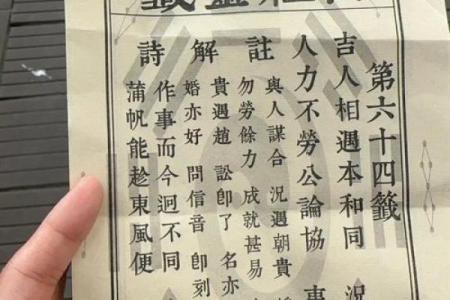 祖靈籤
第六十四籤
吉人相遇本和同 況
人力不勞公論協 事
註
與人謀合 況遇朝貴
勿勞餘力 成就甚易
解
貴遇趙 訟卽了 名亦
婚亦好 問信音 卽刻
詩
作事而今迥不同
蒲帆能趁東風便